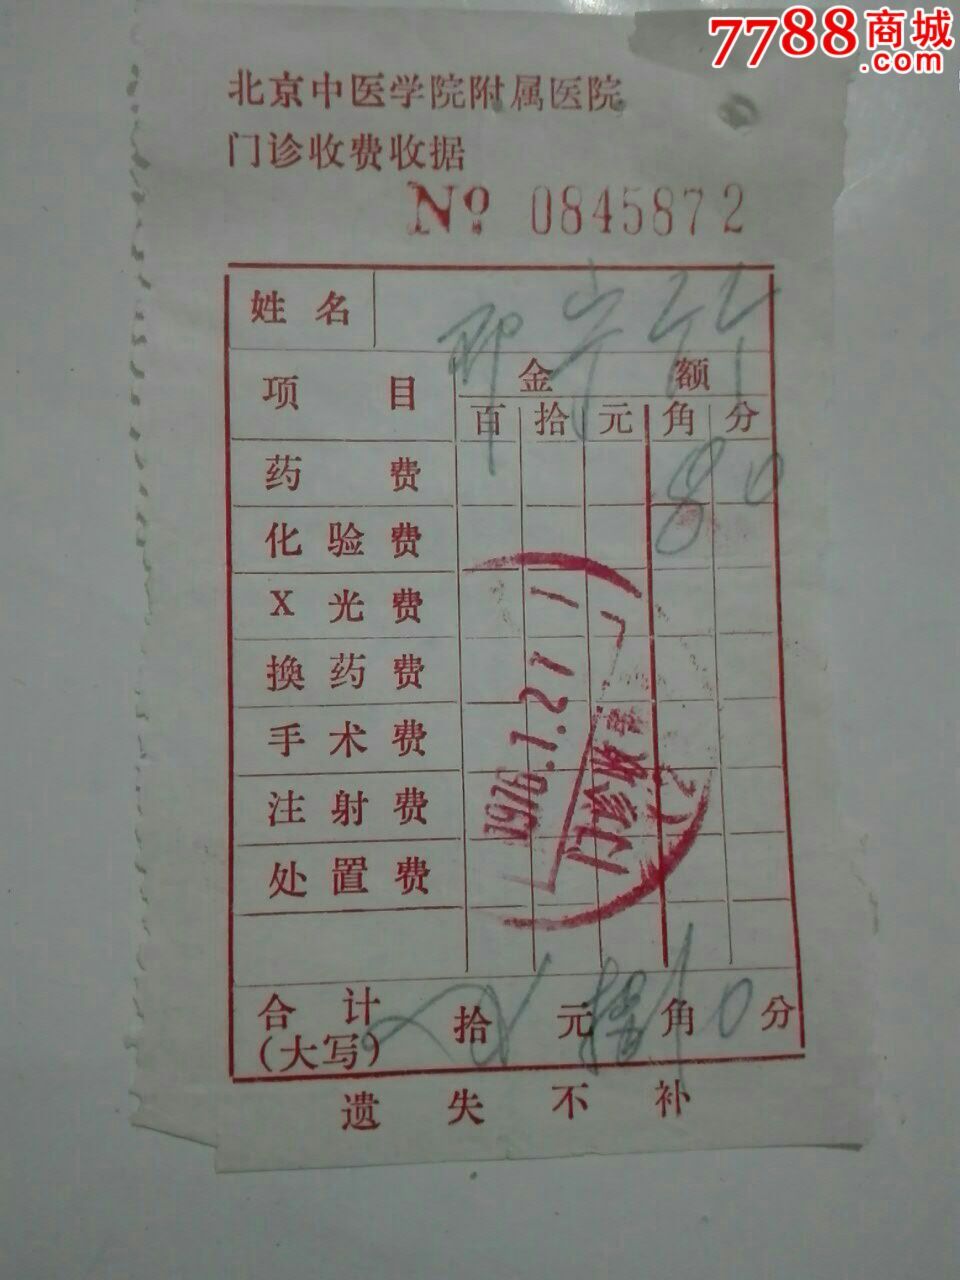 7788商城
.com
北京中医学院附属医院
门诊收费收据
No 0845872
姓名
项目 金额
百 拾 元 角 分
药费 8 0
化验费
X光费
换药费
手术费
注射费
处置费
1976.1.21
门诊
合计 拾 元 捌 角 0 分
(大写)
遗失不补